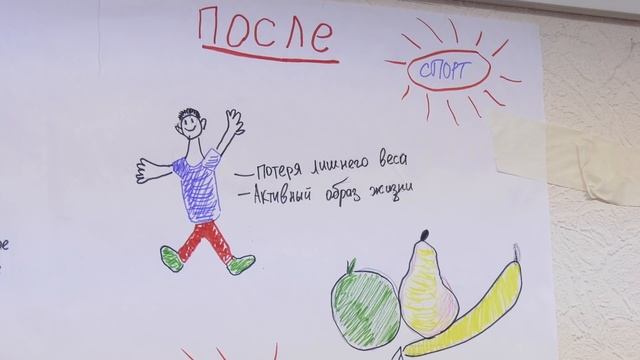 После
спорт
— Потеря лишнего веса
— Активный образ жизни